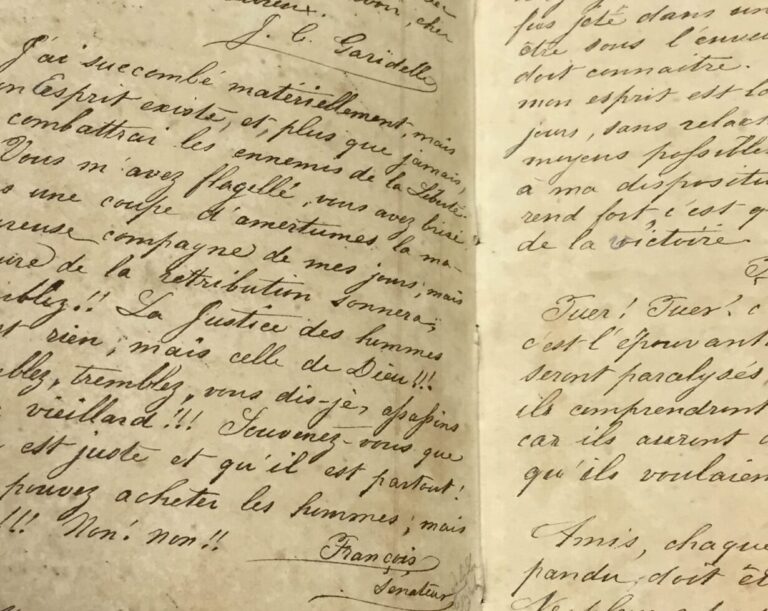 cher
J. C. Garidelle
J'ai succombé matériellement, mais
Esprit existe, et, plus que jamais,
combattrai les ennemis de la Liberté.
Vous m'avez flagellé, vous avez brisé
une coupe d'amertumes la ma-
reuse compagne de mes jours; mais
de la rétribution sonnera;
!! La Justice des hommes
rien; mais celle de Dieu!!!
tremblez, vous dis-je, assassins
vieillard!!! Souvenez-vous que
est juste et qu'il est partout!
pouvez acheter les hommes; mais
!!! Non! non!!
François,
Sénateur
jeté dans un
être sous l'enve
doit connaitre.
mon esprit est
jours, sans relac
moyens possibles
à ma dispositi
rend fort, c'est q
de la victoire.
Tuer! Tuer! c
c'est l'épouvant
seront paralysés
ils comprendront
car ils auront
qu'ils voulaien
Amis, chaque
pandu, doit êt